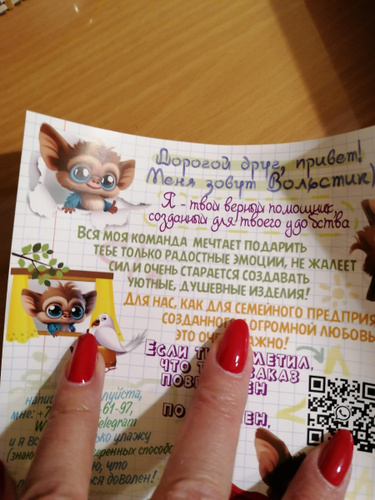 Дорогой друг, привет!
Меня зовут Вольстик)
Я - твой верный помощник,
созданный для твоего удобства
Вся моя команда мечтает подарить
тебе только радостные эмоции, не жалеет
сил и очень старается создавать
уютные, душевные изделия!
Для нас, как для семейного предприя
созданно огромной любовь
это оч ажно!
Если т етил,
что т заказ
пов ен
по ен,
мне: +7 61-97,
W elegram
и я вс ко улажу
(знаю еренных способо
ю, что
ься доволен!